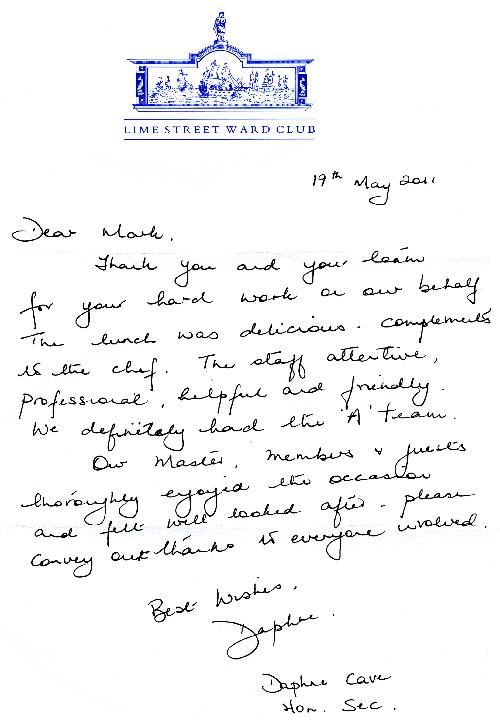 LIME STREET WARD CLUB
19th May 2011
Dear Mark,
Thank you and your team
for your hard work on our behalf
The lunch was delicious - complements
to the chef. The staff attentive,
professional, helpful and friendly.
We definitely had the 'A' Team.
Our Master, members & guests
thoroughly enjoyed the occasion
and felt well looked after - please
convey our thanks to everyone involved.
Best Wishes,
Daphne.
Daphne Cave
Hon. Sec.